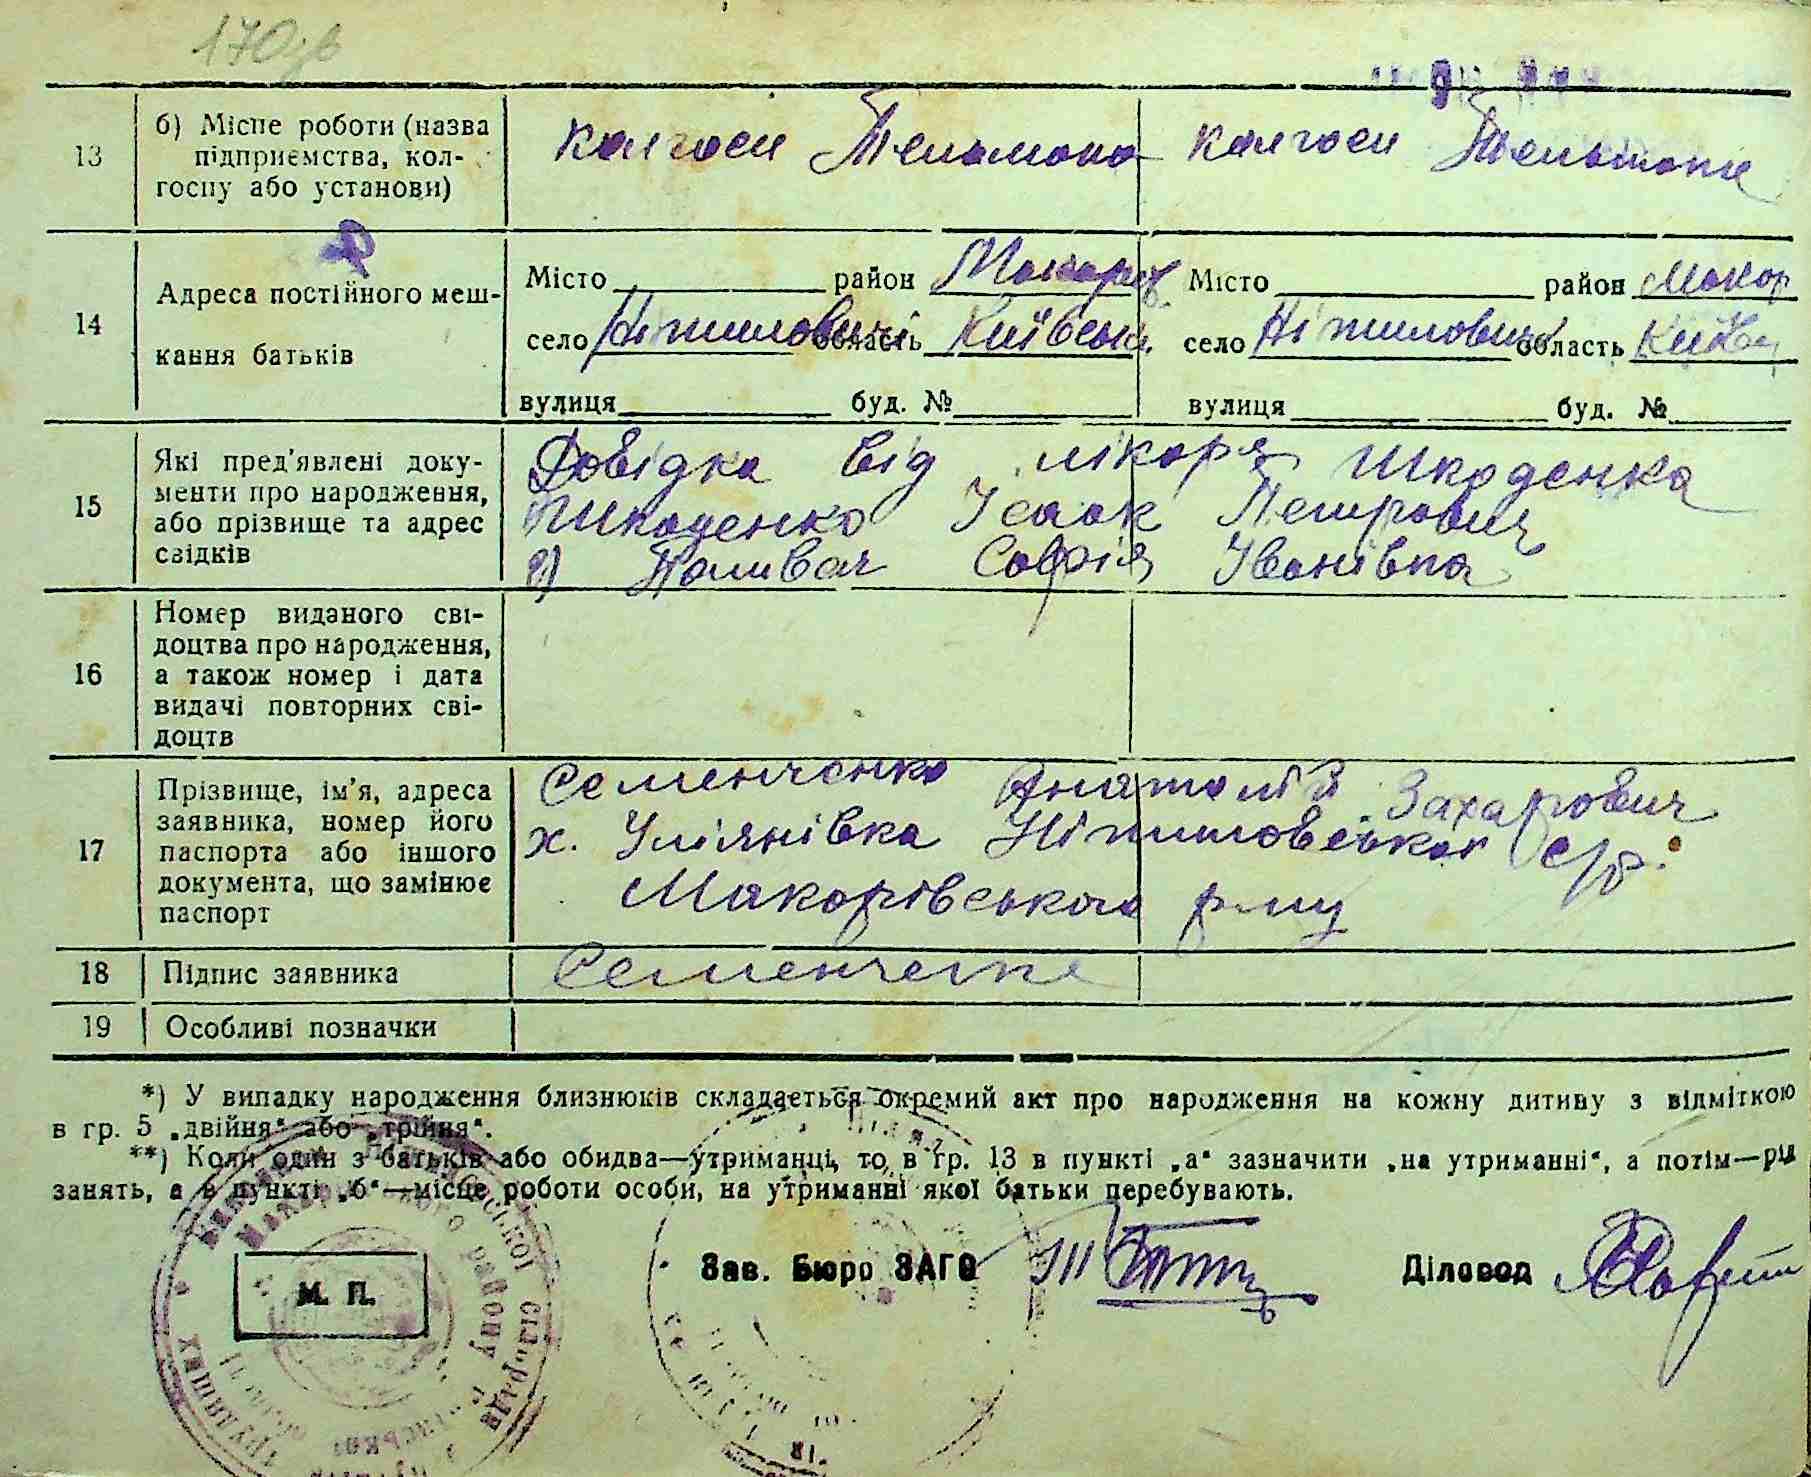 170зв
13 б) Місце роботи (назва підприємства, колгоспу або установи) колгосп Тельмона колгосп Тельмона
14 Адреса постійного мешкання батьків
Місто район Макарів. Місто район Макар
село Ніжиловичі область Київськ. село Ніжиловичі область Київ
вулиця буд. № вулиця буд. №
15 Які пред'явлені документи про народження, або прізвище та адрес свідків
Довідка від лікоря Шкоденка
Шкоденко Ісаак Петрович
2) Поливач Софія Іванівна
16 Номер виданого свідоцтва про народження, а також номер і дата видачі повторних свідоцтв
17 Прізвище, ім'я, адреса заявника, номер його паспорта або іншого документа, що замінює паспорт
Семенченко Анатолій Захарович
х. Улянівка Ніжиловської с/р.
Макорівського р-ну
18 Підпис заявника Семенченко
19 Особливі позначки
*) У випадку народження близнюків складається окремий акт про народження на кожну дитину з відміткою
в гр. 5 „двійня“ або „трійня“.
**) Коли один з батьків або обидва—утриманці, то в гр. 13 в пункті „а“ зазначити „на утриманні“, а потім—рід
занять, а в пункті „б“—місце роботи особи, на утриманні якої батьки перебувають.
М. П. Зав. Бюро ЗАГС Діловод